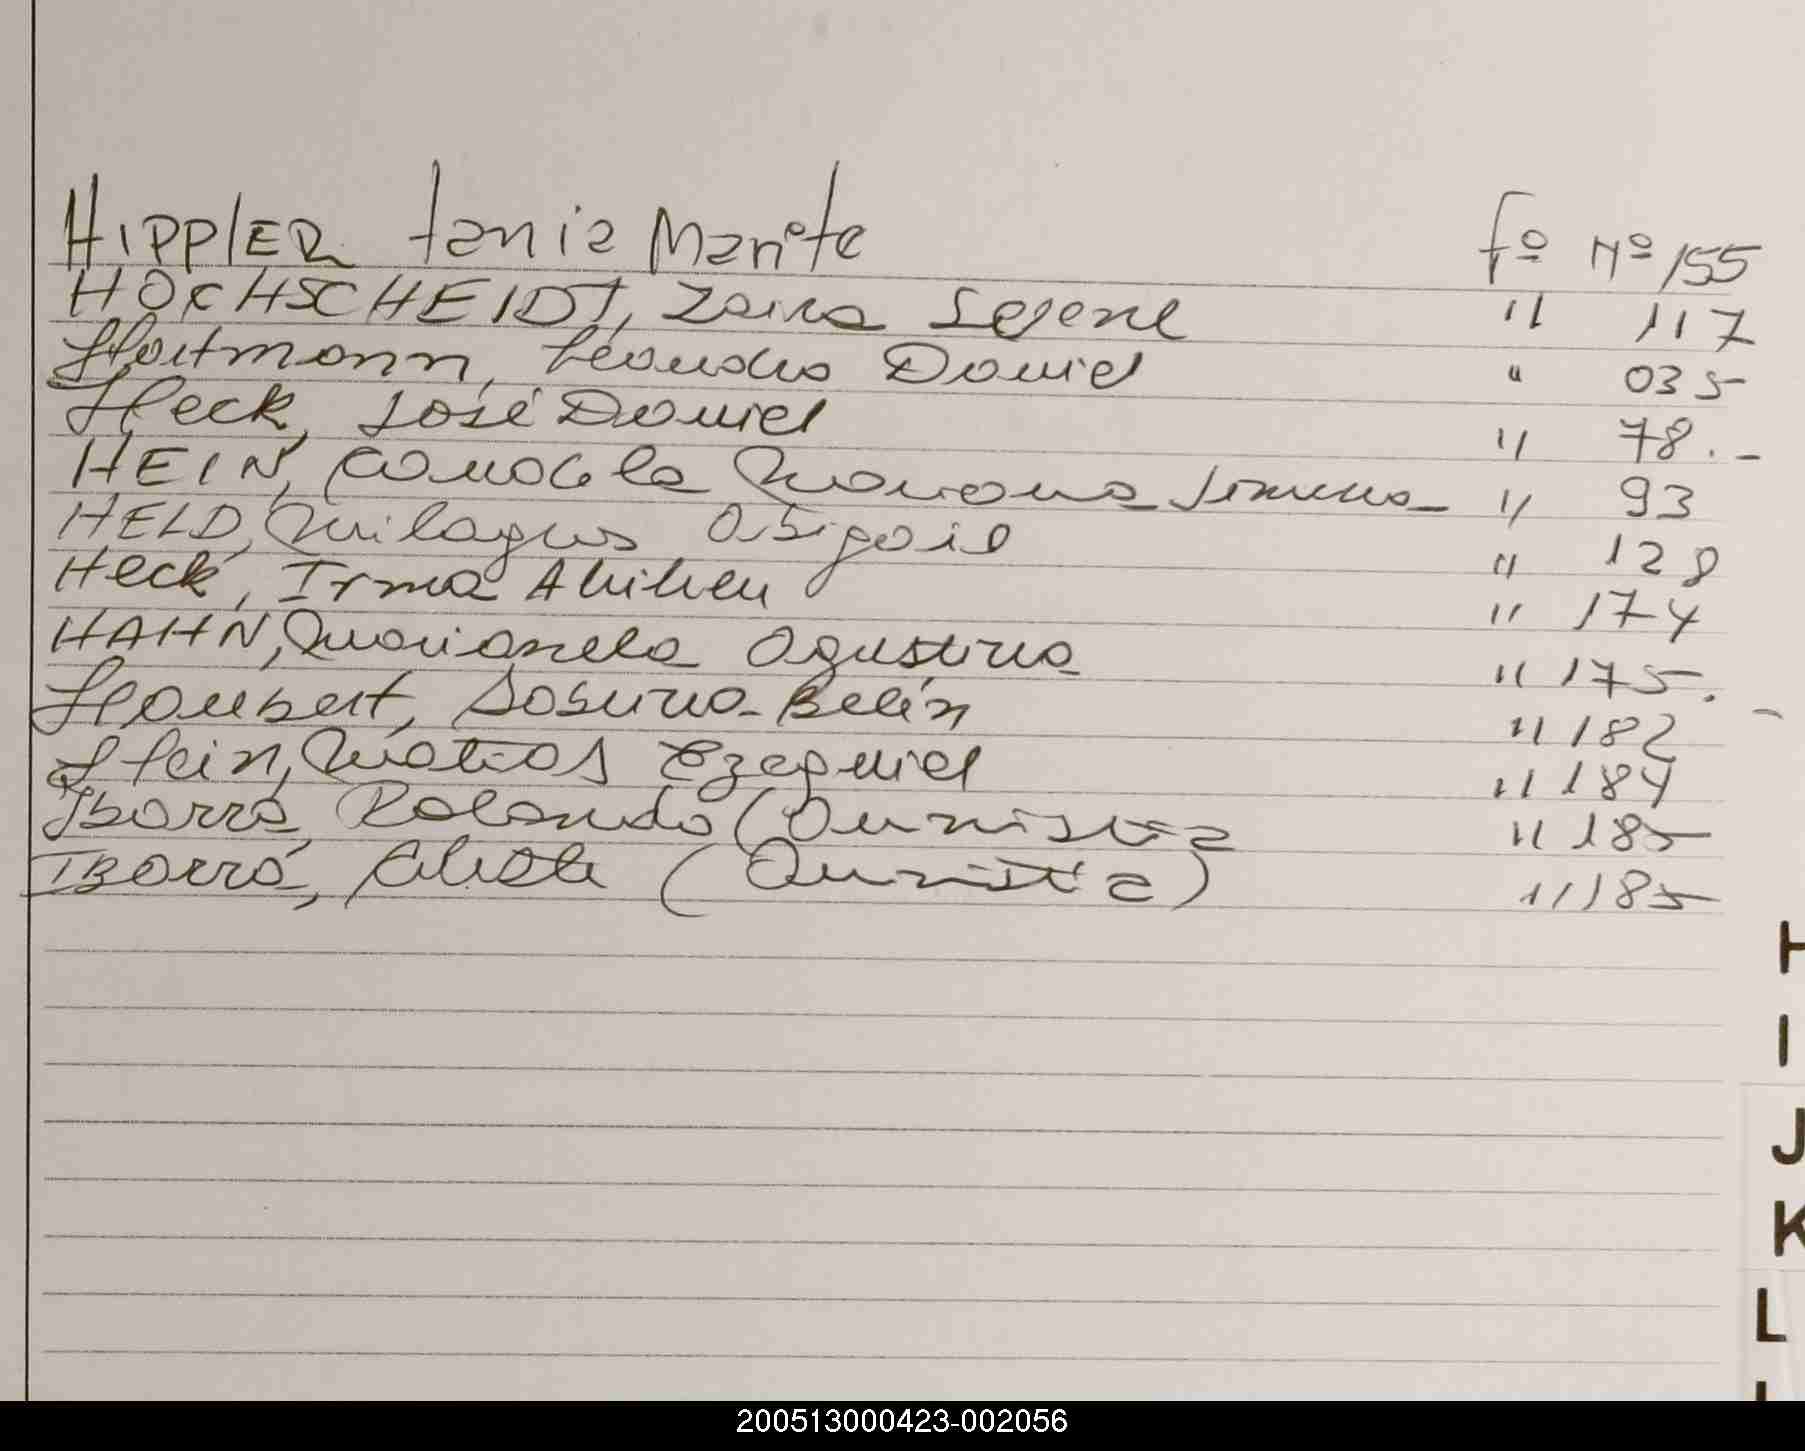 HIPPlER tania Marite fº Nº 155
HOCHSCHEIDT, Zaira Selene " 117
Hartmann, Leandro Daniel " 035
Heck, José Daniel " 78.-
HEIN, Candela Mariana " 93
HELD, Milagros Abigail " 128
Heck, Irma " 174
HAHN, Marianela Agustina " 175.-
Haubert, Sabrina Belén " 182
Hein, Matias Ezequiel " 184
Ibarra, Rolando ( " 185
IBarra, ( ) " 185
H
I
J
K
L
200513000423-002056